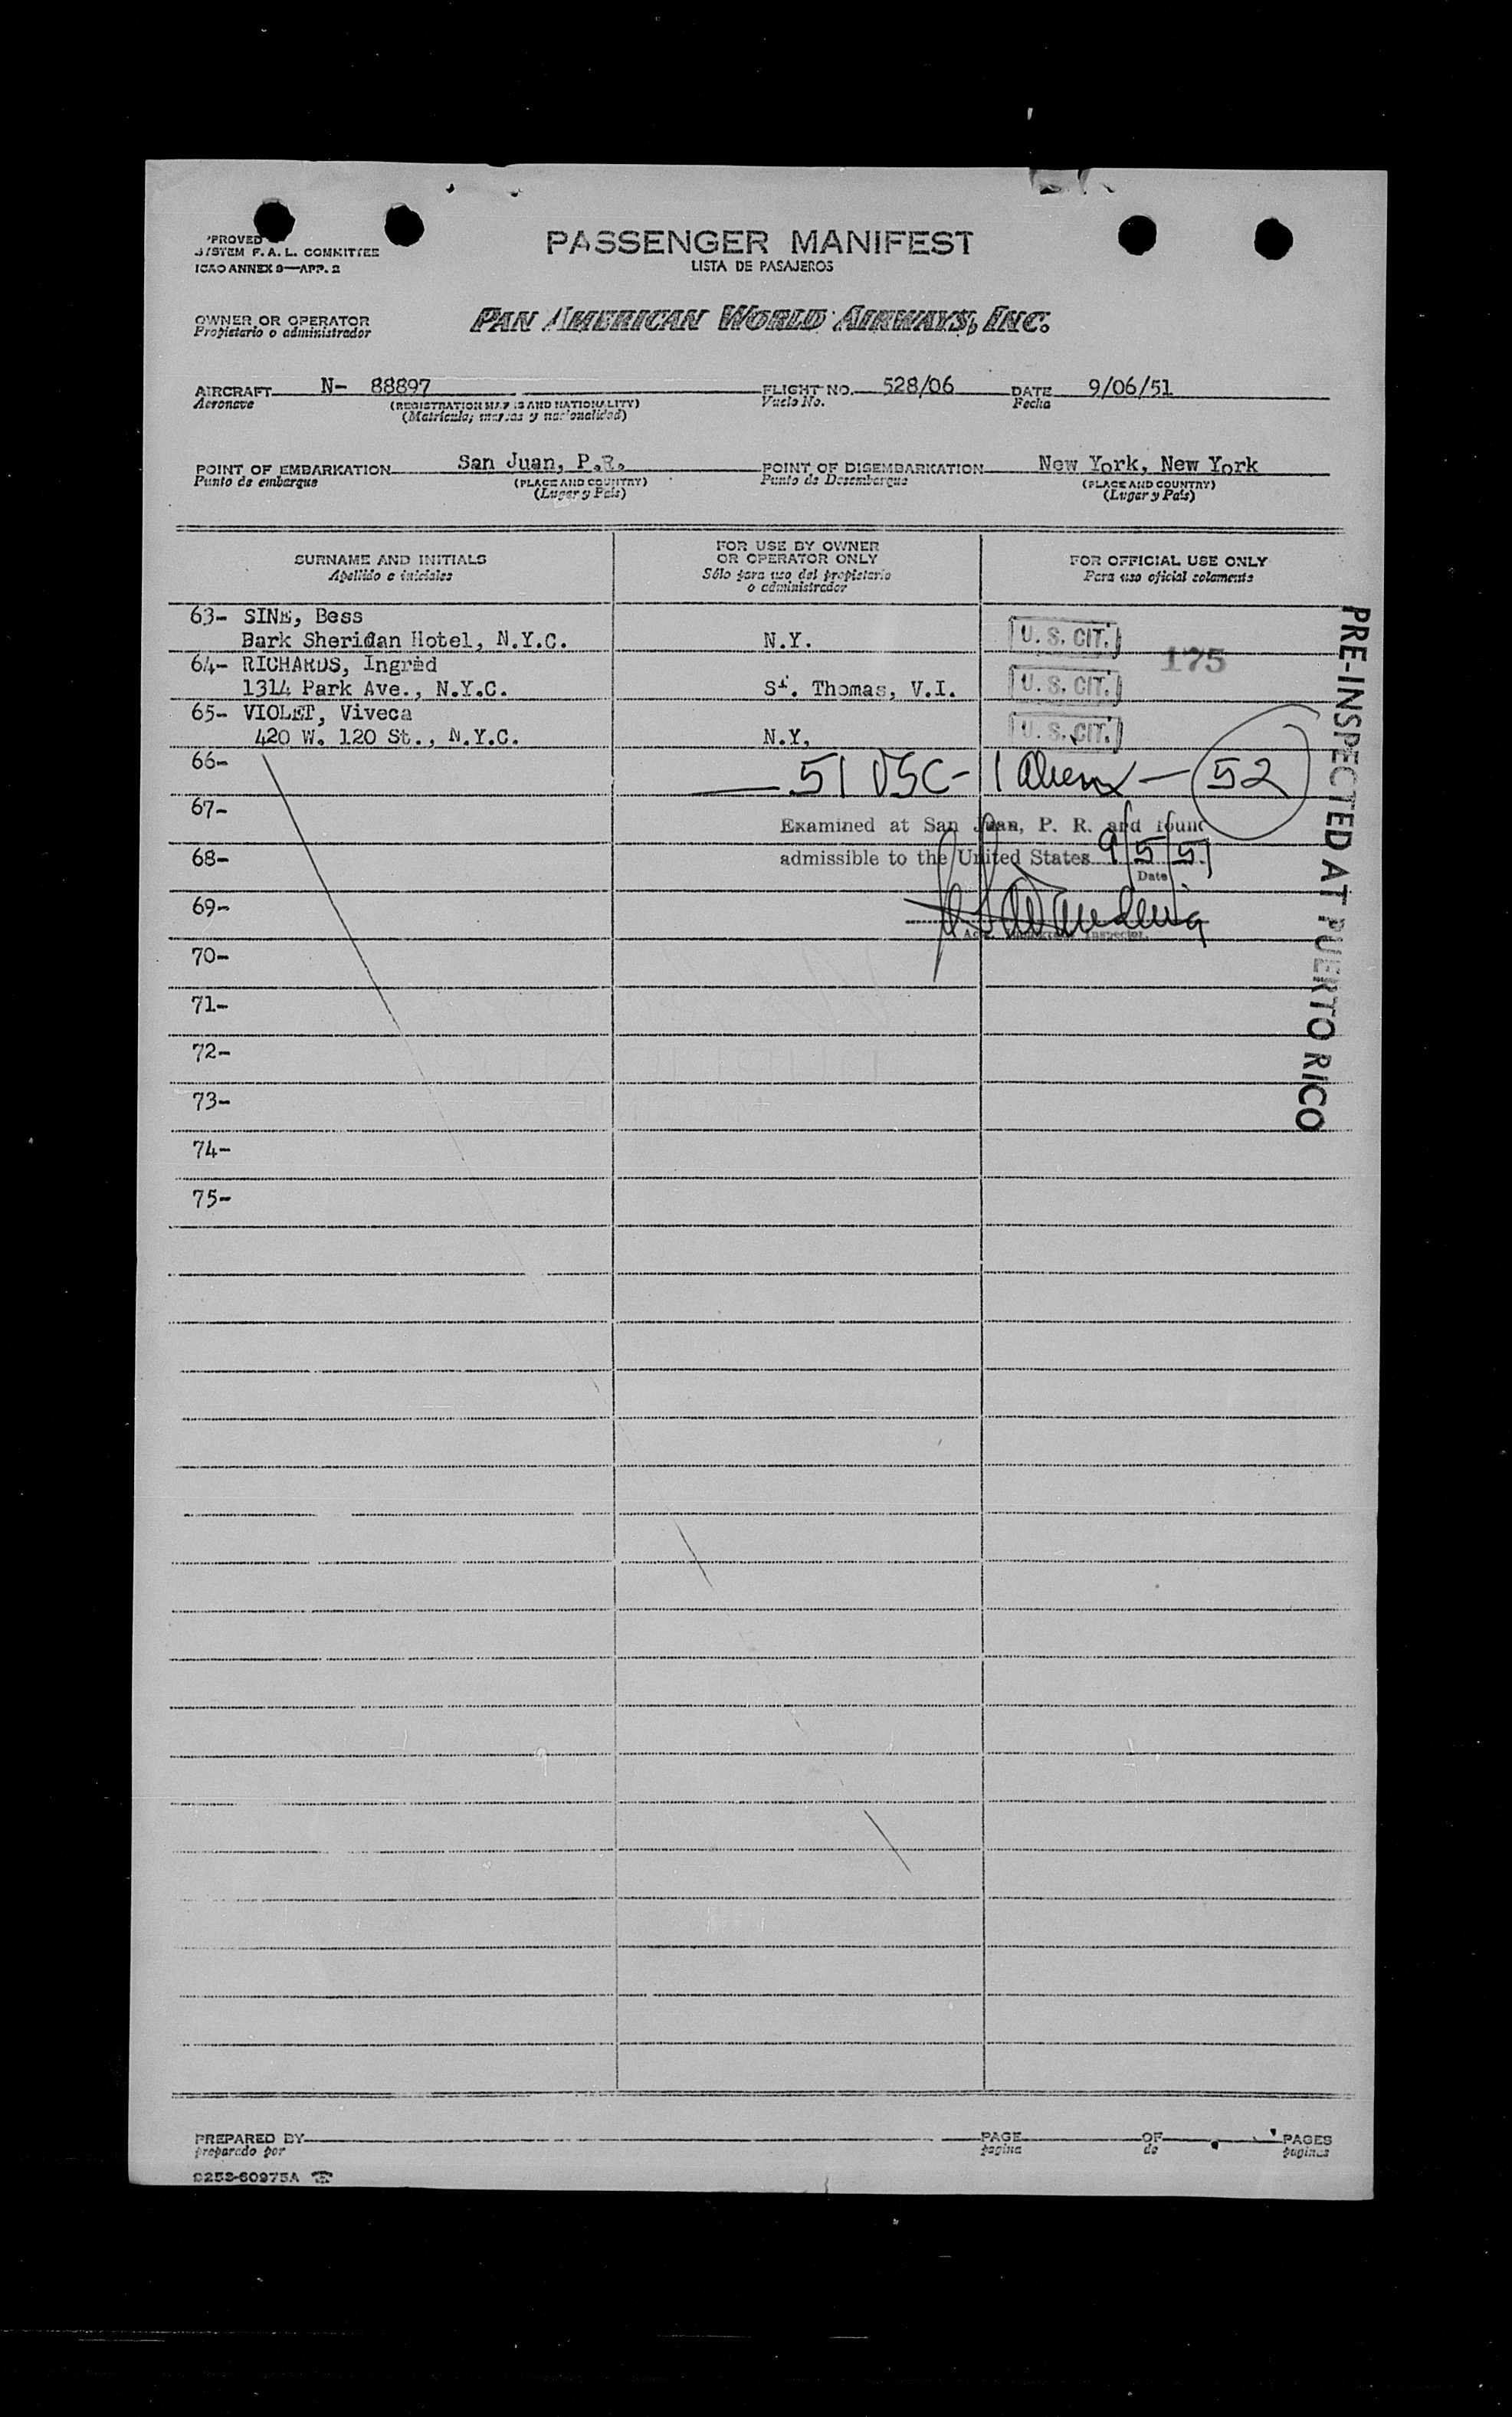 PASSENGER MANIFEST
LISTA DE PASAJEROS
PROVED
SYSTEM F. A. L. COMMITTEE
ICAO ANNEX 9—APP. 2
OWNER OR OPERATOR
Propietario o administrador
PAN AMERICAN WORLD AIRWAYS, INC.
AIRCRAFT N- 88897 FLIGHT NO. 528/06 DATE 9/06/51
Aeronave (REGISTRATION MARKS AND NATIONALITY) Vuelo No. Fecha
(Matrícula, marcas y nacionalidad)
POINT OF EMBARKATION San Juan, P.R. POINT OF DISEMBARKATION New York, New York
Punto de embarque (PLACE AND COUNTRY) Punto de Desembarque (PLACE AND COUNTRY)
(Lugar y País) (Lugar y País)
SURNAME AND INITIALS
Apellido e iniciales
FOR USE BY OWNER
OR OPERATOR ONLY
Sólo para uso del propietario
o administrador
FOR OFFICIAL USE ONLY
Para uso oficial solamente
63- SINE, Bess
Bark Sheridan Hotel, N.Y.C. N.Y. U. S. CIT.
175
64- RICHARDS, Ingrid
1314 Park Ave., N.Y.C. St. Thomas, V.I. U. S. CIT.
65- VIOLET, Viveca
420 W. 120 St., N.Y.C. N.Y. U. S. CIT.
66- 51 USC - 1 Alien — 52
67- Examined at San Juan, P. R. and found
68- admissible to the United States 9/5/51
Date
69-
Inspector.
70-
71-
72-
73-
74-
75-
PRE-INSPECTED AT PUERTO RICO
PREPARED BY PAGE OF PAGES
preparado por pagina de paginas
9253-60975A